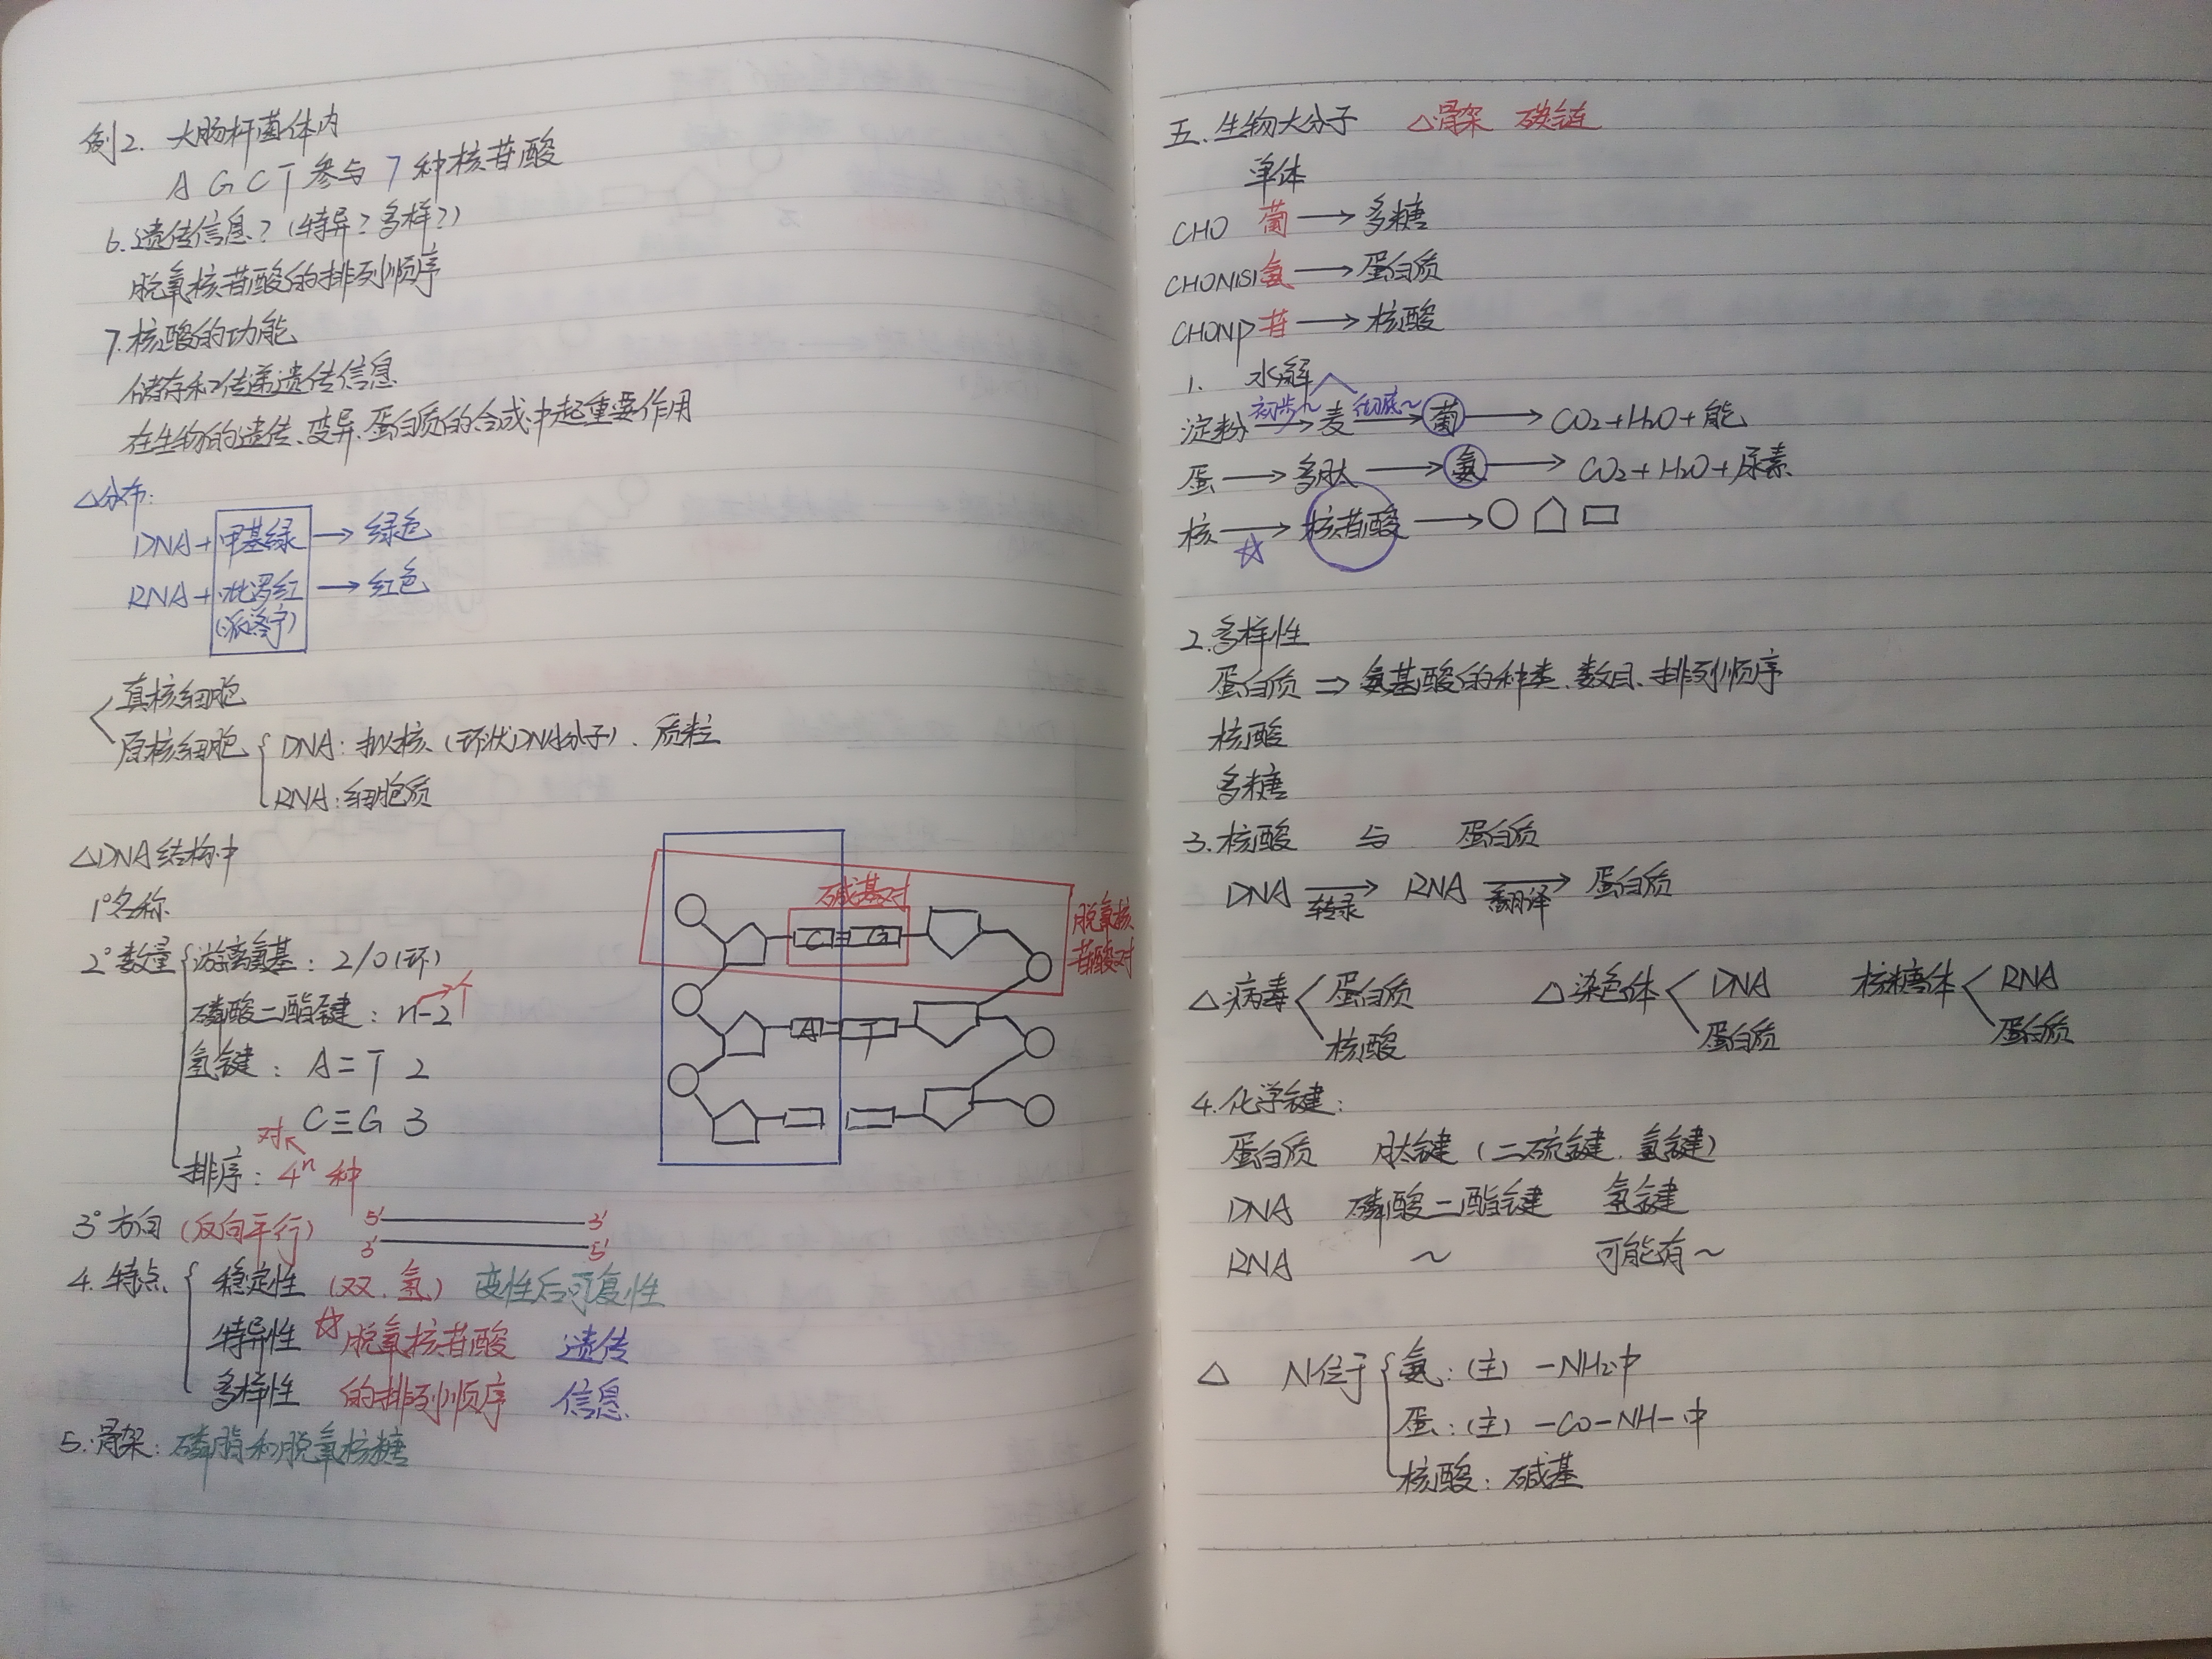 例2. 大肠杆菌体内
A G C T 参与 7 种核苷酸
6.遗传信息?(特异?多样?)
脱氧核苷酸的排列顺序
7.核酸的功能
储存和传递遗传信息
在生物的遗传、变异、蛋白质的合成中起重要作用
△分布:
DNA+甲基绿→绿色
RNA+吡罗红→红色
(派洛宁)
真核细胞
原核细胞 { DNA:拟核(环状DNA分子)、质粒
RNA:细胞质
△DNA结构中
1°名称
2°数量 { 游离氨基:2/0(环)
磷酸二酯键:n-2 个
氢键: A=T 2
C≡G 3
对
排序:4ⁿ 种
碱基对
脱氧核
苷酸对
C≡G
A=T
3°方向(反向平行) 5' 3'
3' 5'
4.特点 { 稳定性 (双.氢) 变性后可复性
特异性 ☆脱氧核苷酸 遗传
多样性 的排列顺序 信息
5.骨架:磷脂和脱氧核糖
五.生物大分子 △骨架 碳链
单体
CHO 葡→多糖
CHON(S)氨→蛋白质
CHONP苷→核酸
1. 水解
初步~ 彻底~
淀粉→麦→葡→CO₂+H₂O+能
蛋→多肽→氨→CO₂+H₂O+尿素
核→核苷酸→○⌂▭
☆
2.多样性
蛋白质⇒氨基酸的种类、数目、排列顺序
核酸
多糖
3.核酸 与 蛋白质
DNA→RNA→蛋白质
转录 翻译
△病毒<蛋白质 △染色体<DNA 核糖体<RNA
核酸 蛋白质 蛋白质
4.化学键:
蛋白质 肽键(二硫键.氢键)
DNA 磷酸二酯键 氢键
RNA ~ 可能有~
△ N位于 { 氨:(主) -NH₂中
蛋:(主) -CO-NH-中
核酸:碱基